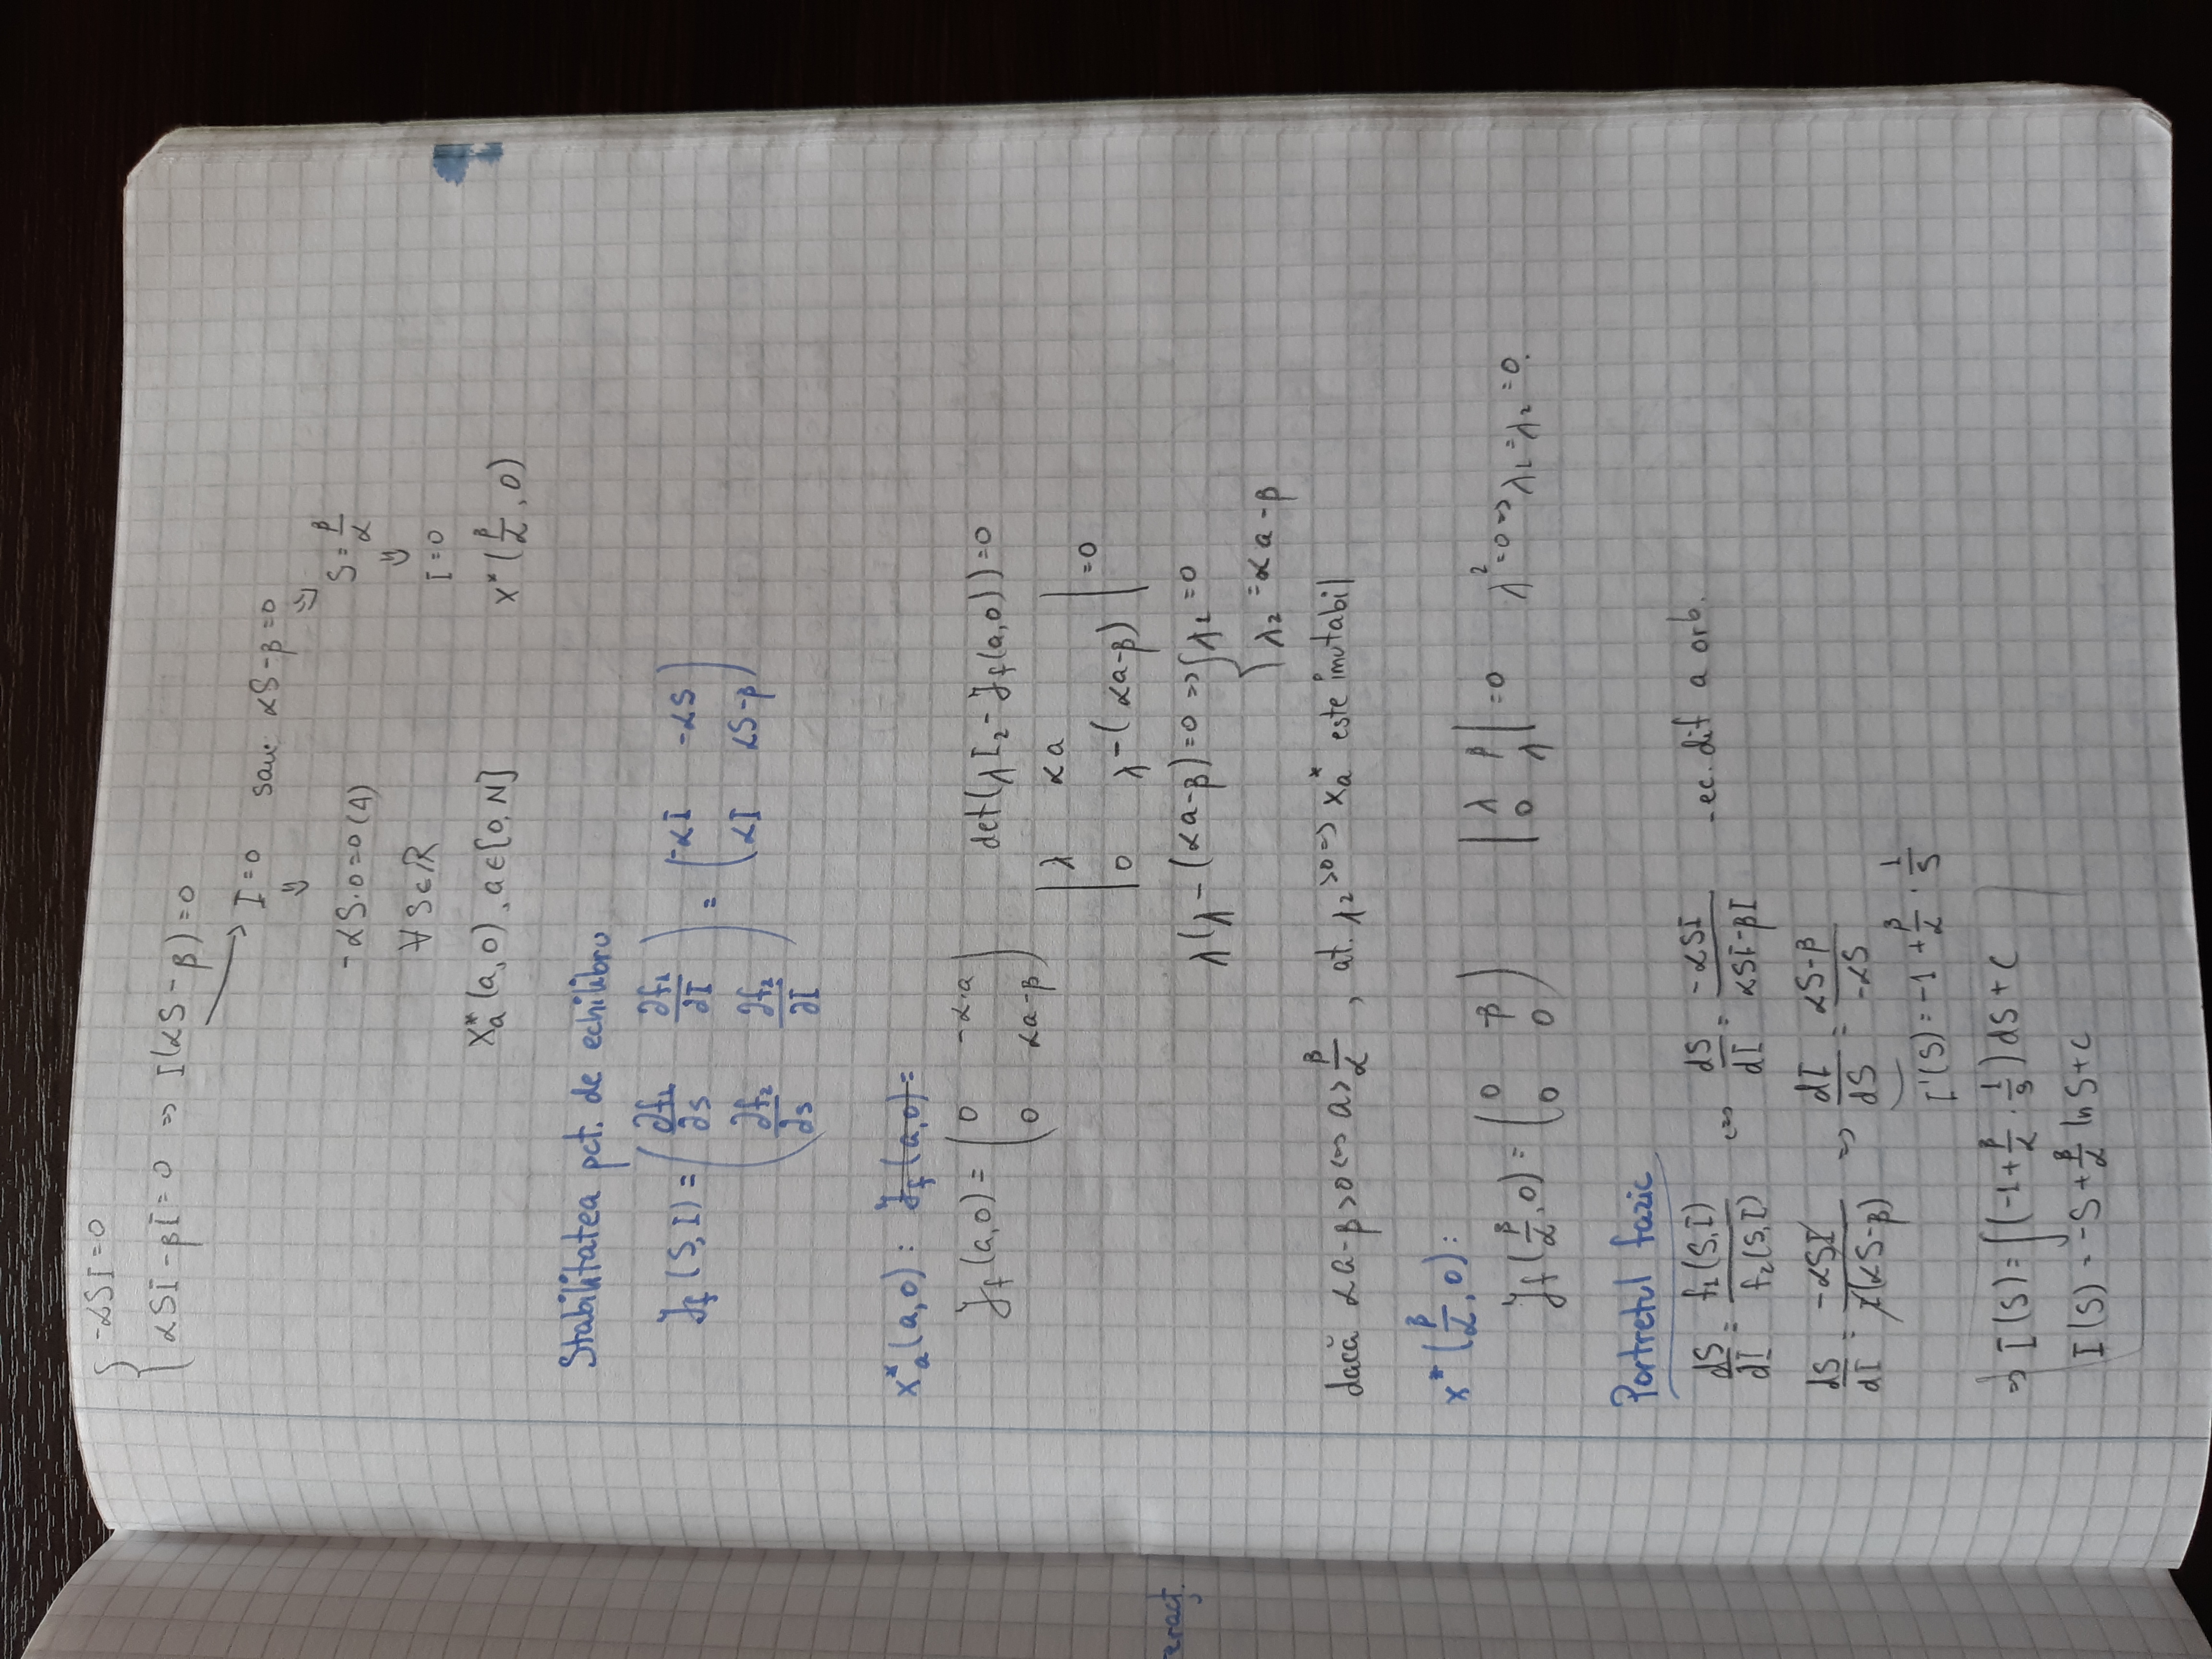 { -αSI = 0
αSI - βI = 0 => I(αS - β) = 0
I = 0 sau αS - β = 0
⇓ ⇓
-αS·0 = 0 (A) S = β/α
⇓
∀ S ∈ ℝ I = 0
X*a (a, 0), a ∈ [0, N] X* (β/α, 0)
Stabilitatea pct. de echilibru
Jf (S, I) = ( ∂f1/∂S ∂f1/∂I ; ∂f2/∂S ∂f2/∂I ) = ( -αI -αS ; αI αS-β )
X*a (a, 0) : Jf (a, 0) =
Jf (a, 0) = ( 0 -α·a ; 0 αa-β ) det(λI2 - Jf(a, 0)) = 0
| λ αa ; 0 λ-(αa-β) | = 0
eract.
λ(λ - (αa-β) = 0 => { λ1 = 0
λ2 = αa - β
dacă αa-β > 0 <=> a > β/α, at. λ2 > 0 => Xa* este imutabil
X* (β/α, 0) :
Jf (β/α, 0) = ( 0 -β ; 0 0 ) | λ β ; 0 λ | = 0 λ² = 0 => λ1 = λ2 = 0.
Portretul fazic
dS/dI = f1(S,I)/f2(S,I) <=> dS/dI = -αSI/αSI-βI - ec. dif a orb.
dS/dI = -αSI/I(αS-β) => dI/dS = αS-β/-αS
I'(S) = -1 + β/α · 1/S
=> I(S) = ∫(-1 + β/α · 1/S) dS + C
I(S) = -S + β/α ln S + C